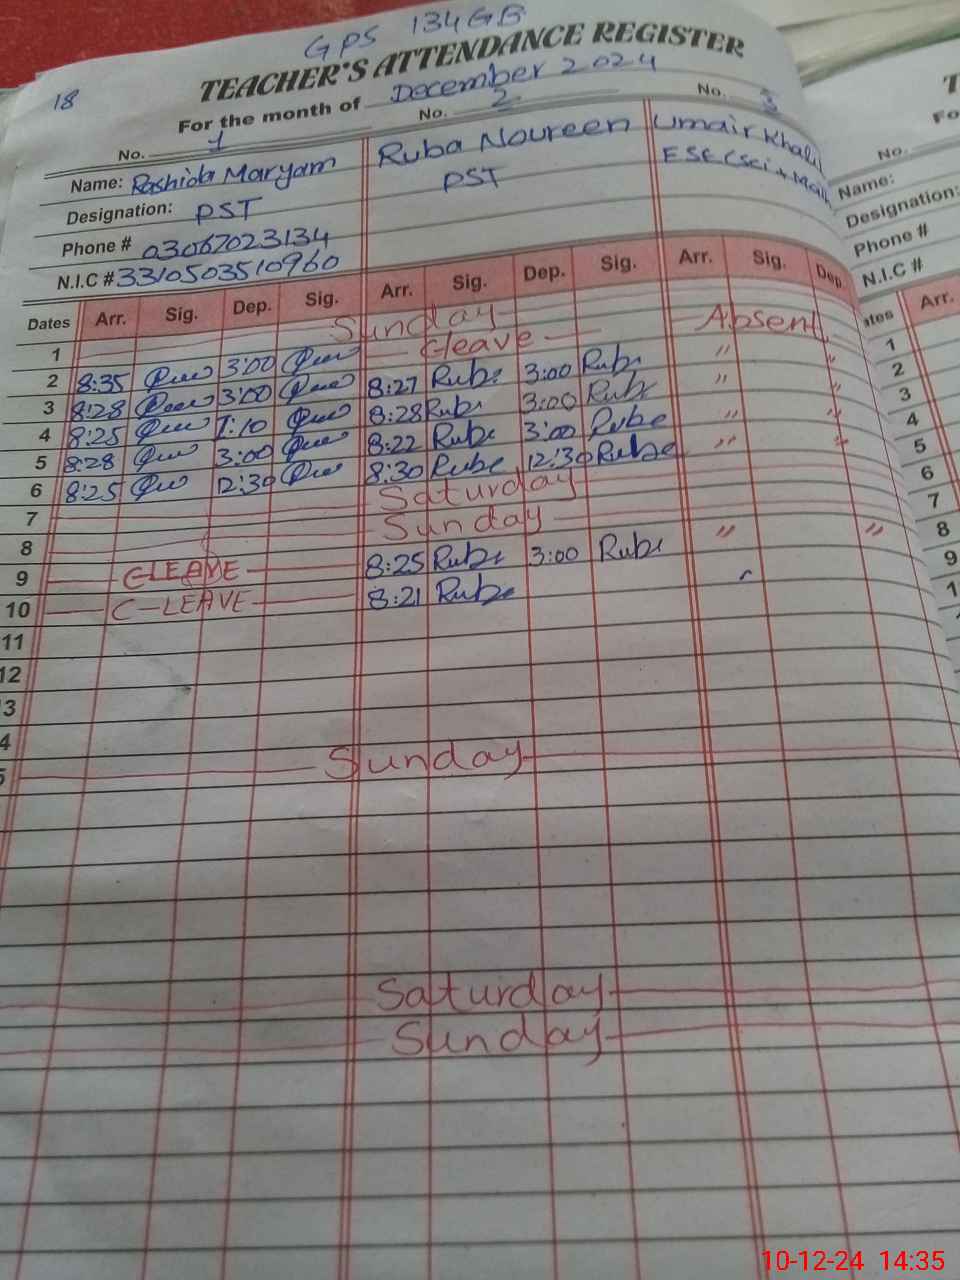 GPS 134GB
18
TEACHER'S ATTENDANCE REGISTER
For the month of December 2024
No. 1 No. 2 No. 3
Name: Rashida Maryam Ruba Noureen Umair Khalid
Designation: PST PST ESE (Sci + Math
Phone # 03067023134
N.I.C # 3310503510960
Dates Arr. Sig. Dep. Sig. Arr. Sig. Dep. Sig. Arr. Sig. Dep.
1 Sunday
2 8:35 3:00 C leave Absent
3 8:28 3:00 8:27 Ruba 3:00 Ruba " "
4 8:25 1:10 8:28 Ruba 3:00 Ruba " "
5 8:28 3:00 8:22 Ruba 3:00 Ruba " "
6 8:25 12:30 8:30 Ruba 12:30 Ruba " "
7 Saturday
8 Sunday
9 C LEAVE 8:25 Ruba 3:00 Ruba " "
10 C-LEAVE 8:21 Ruba
11
12
3
4
5 Sunday
Saturday
Sunday
T
Fo
No.
Name:
Designation:
Phone #
N.I.C #
ates Arr.
1
2
3
4
5
6
7
8
9
1
10-12-24 14:35